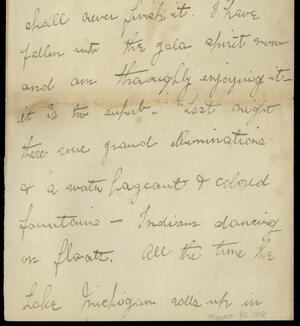 shall never finish it. I have
fallen into the gala spirit now
and am thoroughly enjoying it -
it is too superb. Last night
there were grand illuminations
& a water pageant & colored
fountains - Indians dancing
on floats. All the time the
Lake Michigan rolls up in